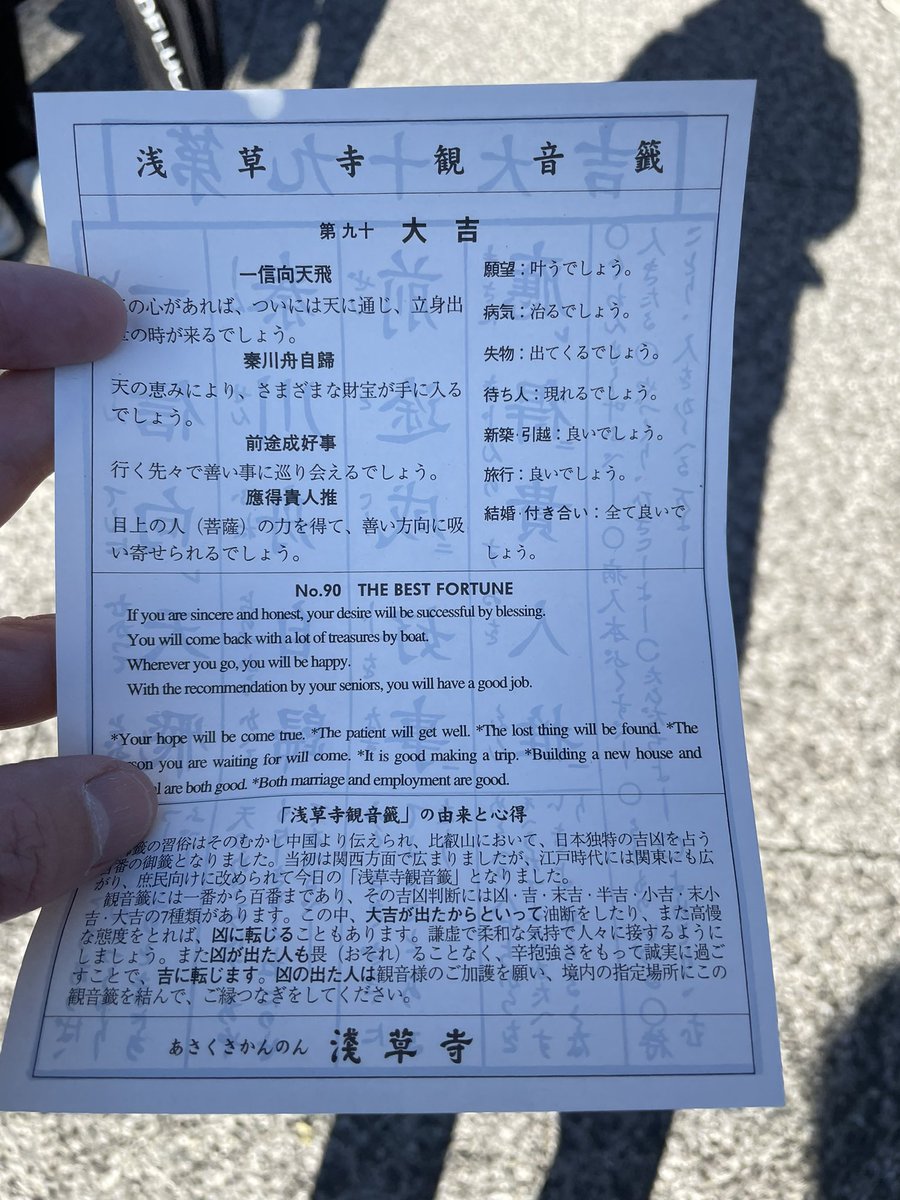 浅草寺観音籤
第九十 大吉
一信向天飛
の心があれば、ついには天に通じ、立身出
の時が来るでしょう。
秦川舟自歸
天の恵みにより、さまざまな財宝が手に入る
でしょう。
前途成好事
行く先々で善い事に巡り会えるでしょう。
應得貴人推
目上の人（菩薩）の力を得て、善い方向に吸
い寄せられるでしょう。
願望：叶うでしょう。
病気：治るでしょう。
失物：出てくるでしょう。
待ち人：現れるでしょう。
新築・引越：良いでしょう。
旅行：良いでしょう。
結婚・付き合い：全て良いで
しょう。
No.90 THE BEST FORTUNE
If you are sincere and honest, your desire will be successful by blessing.
You will come back with a lot of treasures by boat.
Wherever you go, you will be happy.
With the recommendation by your seniors, you will have a good job.
*Your hope will be come true. *The patient will get well. *The lost thing will be found. *The
you are waiting for will come. *It is good making a trip. *Building a new house and
are both good. *Both marriage and employment are good.
「浅草寺観音籤」の由来と心得
の習俗はそのむかし中国より伝えられ、比叡山において、日本独特の吉凶を占う
番の御籤となりました。当初は関西方面で広まりましたが、江戸時代には関東にも広
がり、庶民向けに改められて今日の「浅草寺観音籤」となりました。
観音籤には一番から百番まであり、その吉凶判断には凶・吉・末吉・半吉・小吉・末小
吉・大吉の7種類があります。この中、大吉が出たからといって油断をしたり、また高慢
な態度をとれば、凶に転じることもあります。謙虚で柔和な気持で人々に接するように
しましょう。また凶が出た人も畏（おそれ）ることなく、辛抱強さをもって誠実に過ご
すことで、吉に転じます。凶の出た人は観音様のご加護を願い、境内の指定場所にこの
観音籤を結んで、ご縁つなぎをしてください。
あさくさかんのん 淺草寺